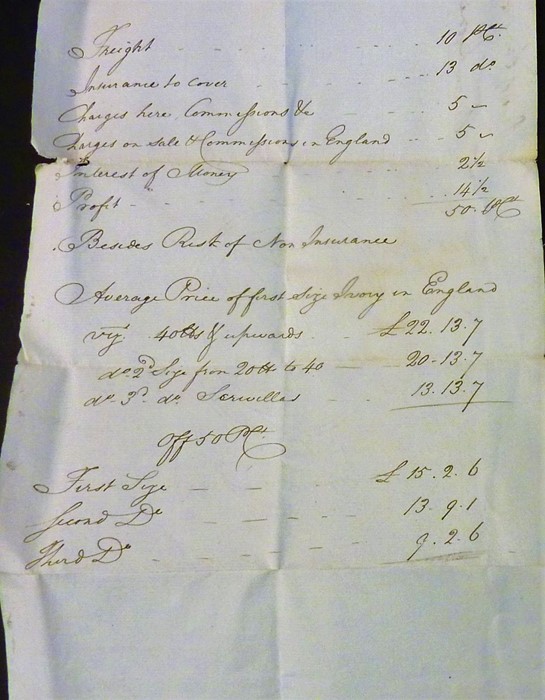 Freight - - - - - 10 P Ct.
Insurance to cover - - - - 13 do
Charges here, Commissions &c - - 5 ~
Charges on sale & Commissions in England - - 5 ~
Interest of Money - - 2½
Profit - - - 14½
50 P Ct
Besides Risk of Non Insurance
Average Price of first Size Ivory in England
vizt. 40 lbs & upwards - - £22.13.7
do 2d Size from 20 lb to 40 — 20-13.7
do 3d. do Scrivellas - 13.13.7
Off 50 P Ct.
First Size — — — £15.2.6
Second Do - - - 13.9.1
Third Do - - - 9.2.6